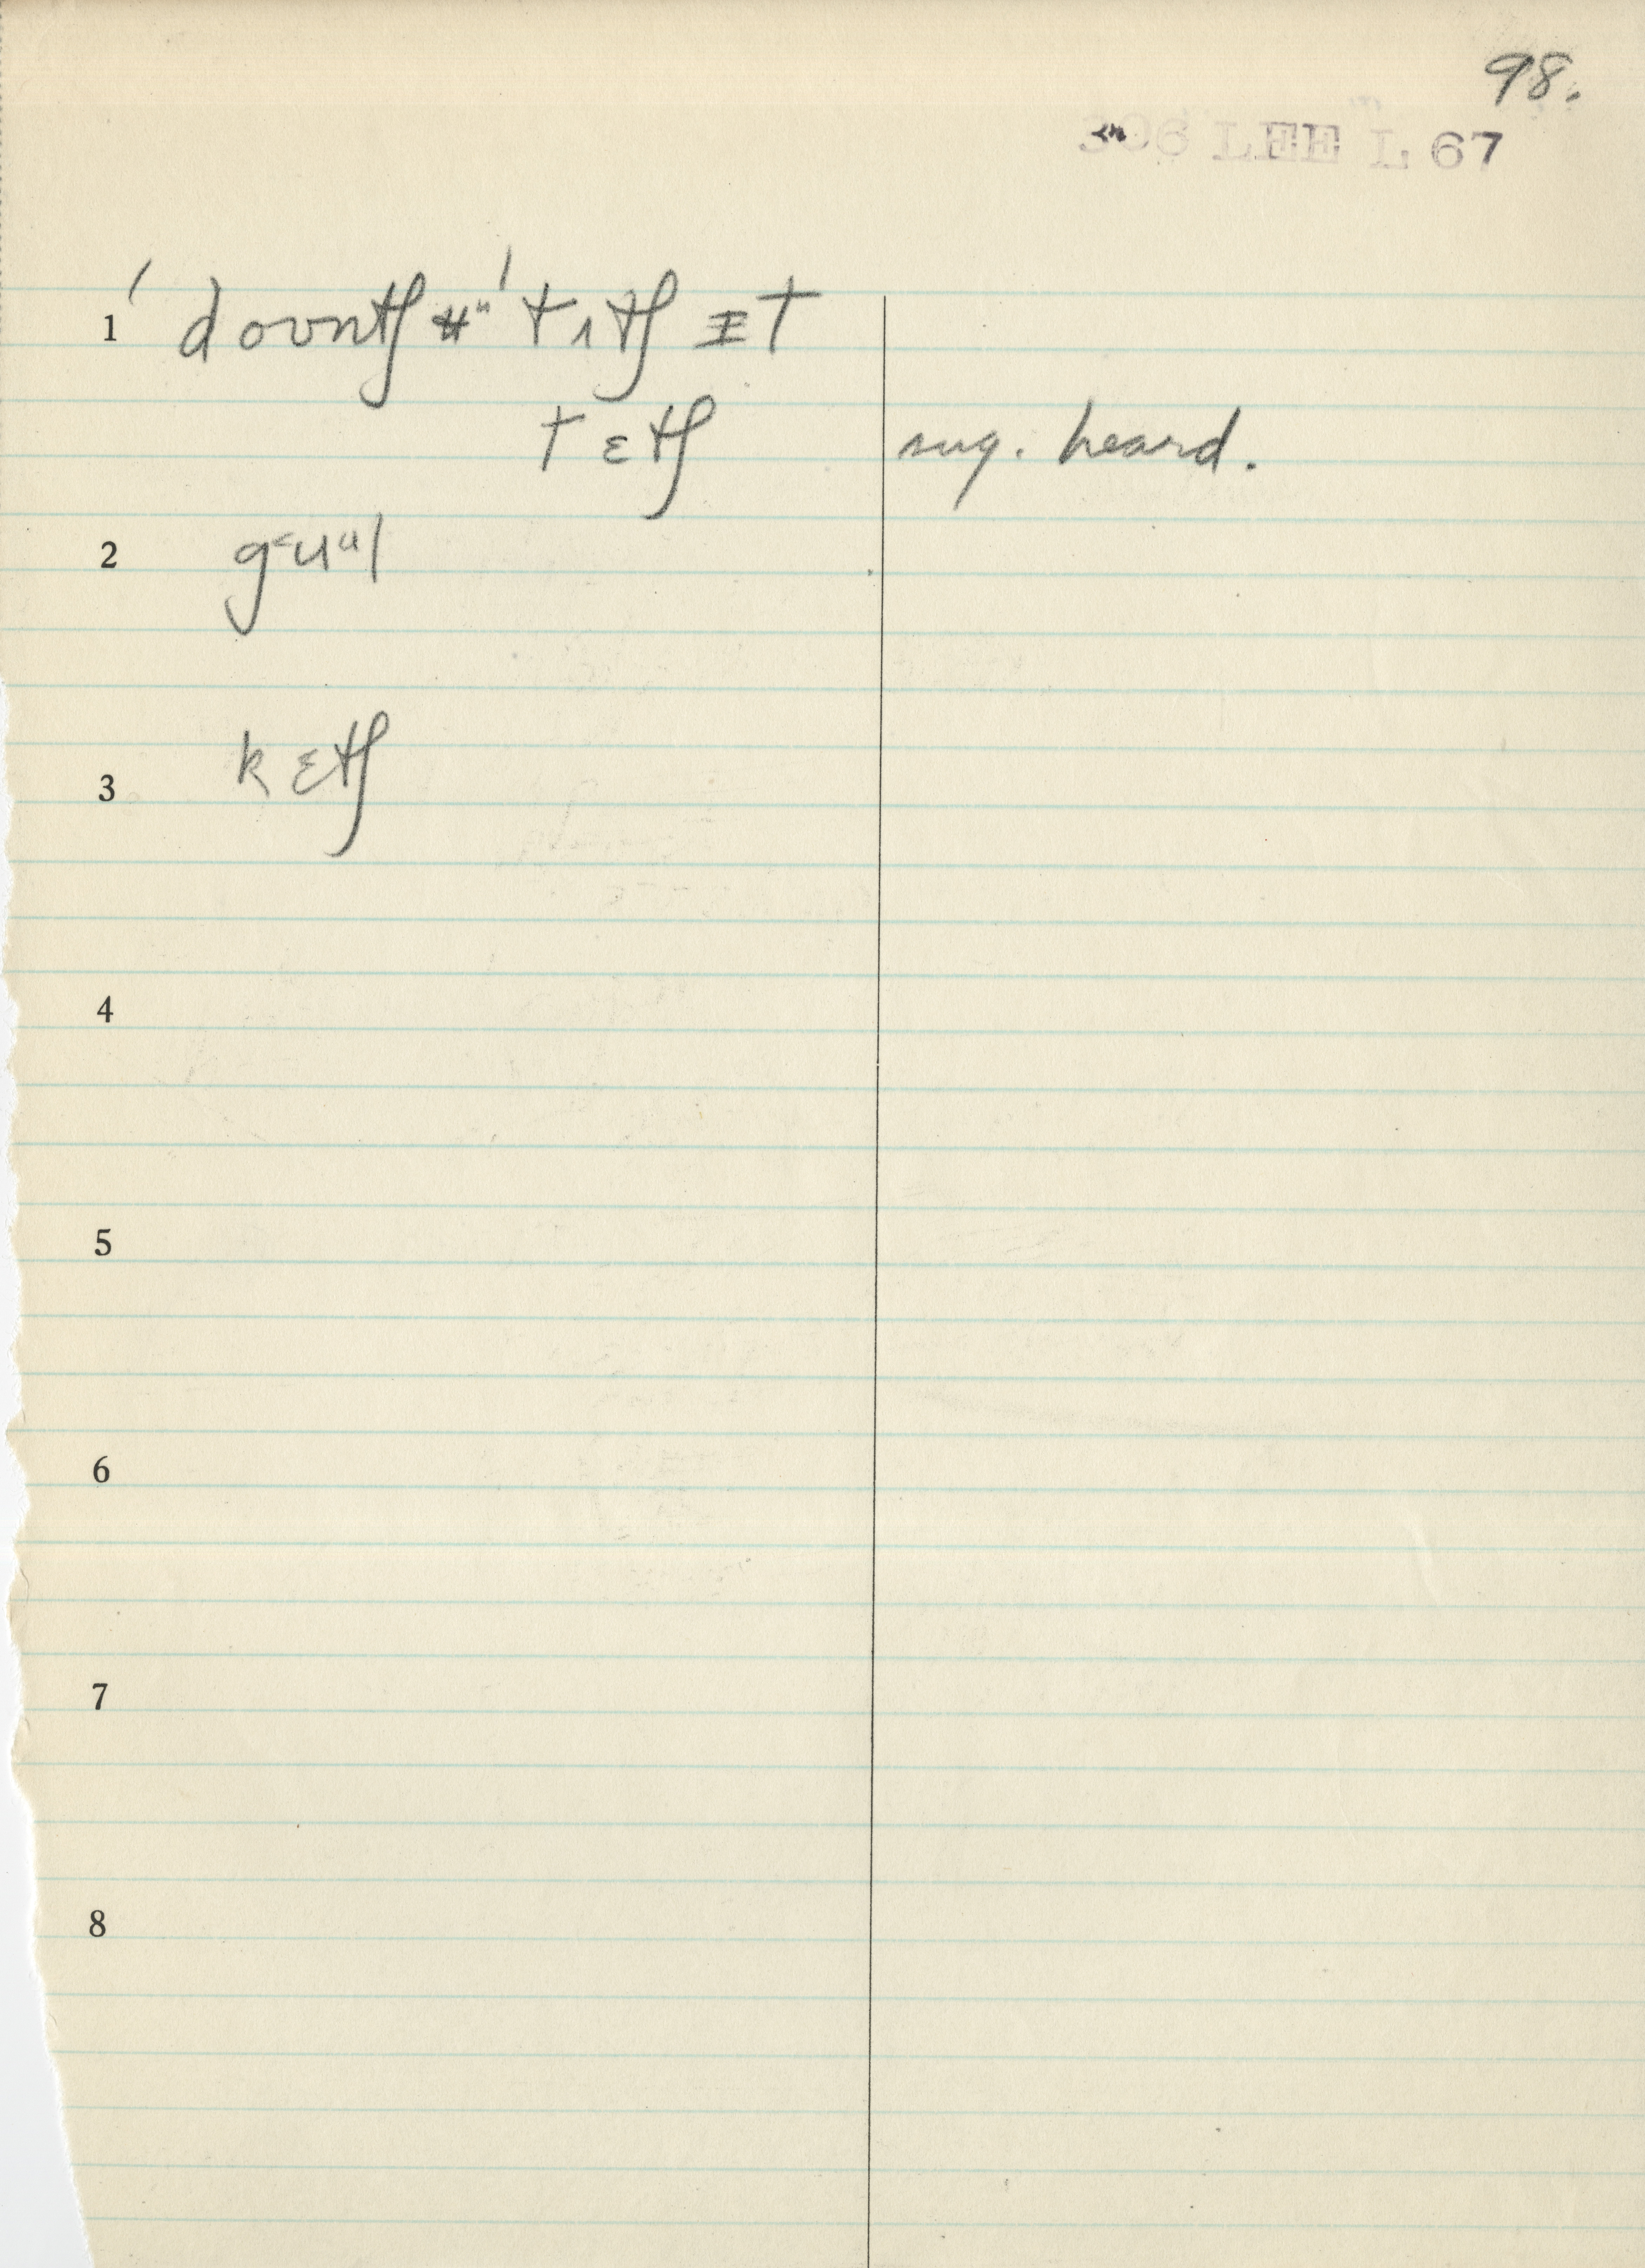 98.
306 LEE L 67
1 ˈdoʊntʃ ʉᵘ ˈtʌtʃ ɪt
tɛtʃ sug. heard.
2 g˂uᵘl
3 kɛtʃ
4
5
6
7
8